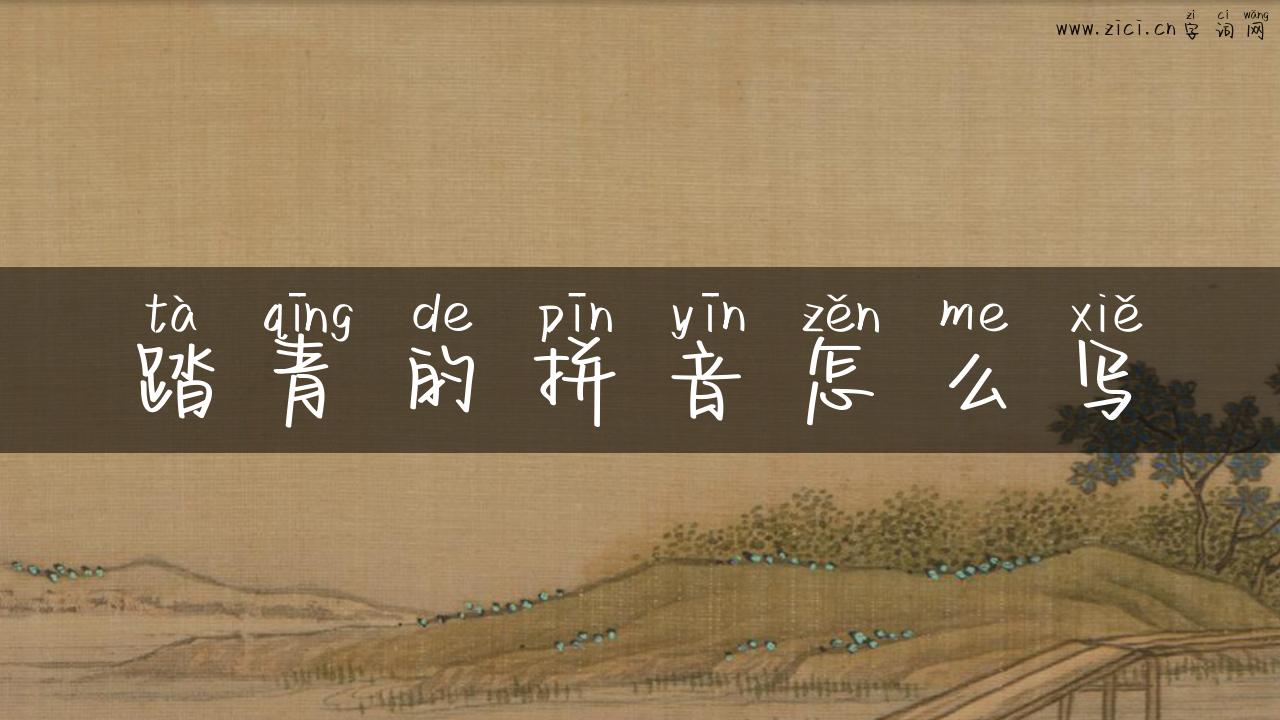 zì cí wǎng
www.zici.cn字词网
tà qīng de pīn yīn zěn me xiě
踏青的拼音怎么写